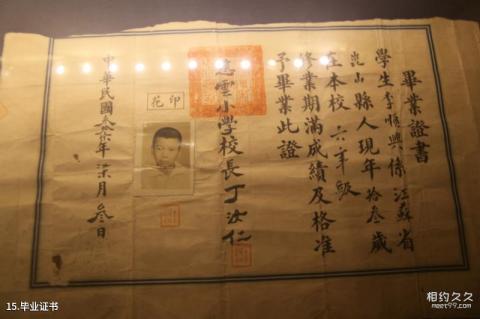 畢業證書
學生李順興係江蘇省
崑山縣人現年拾叁歲
在本校六年級
修業期滿成績及格准
予畢業此證
慈雲小學校長丁汝仁
印花
中華民國叁柒年柒月叁日
15.毕业证书
相约久久
meet99.com